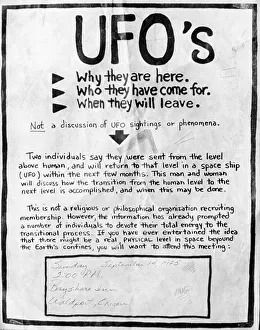 UFO's
Why they are here.
Who they have come for.
When they will leave.
Not a discussion of UFO sightings or phenomena.
Two individuals say they were sent from the level
above human, and will return to that level in a space ship
(UFO) within the next few months. This man and woman
will discuss how the transition from the human level to the
next level is accomplished, and when this may be done.
This is not a religious or philosophical organization recruiting
membership. However, the information has already prompted
a number of individuals to devote their total energy to the
transitional process. If you have ever entertained the idea
that there might be a real, PHYSICAL level in space beyond
the Earth's confines, you will want to attend this meeting:
Sunday, September
2:00 P.M.
Bayshore Inn
Waldport, Oregon